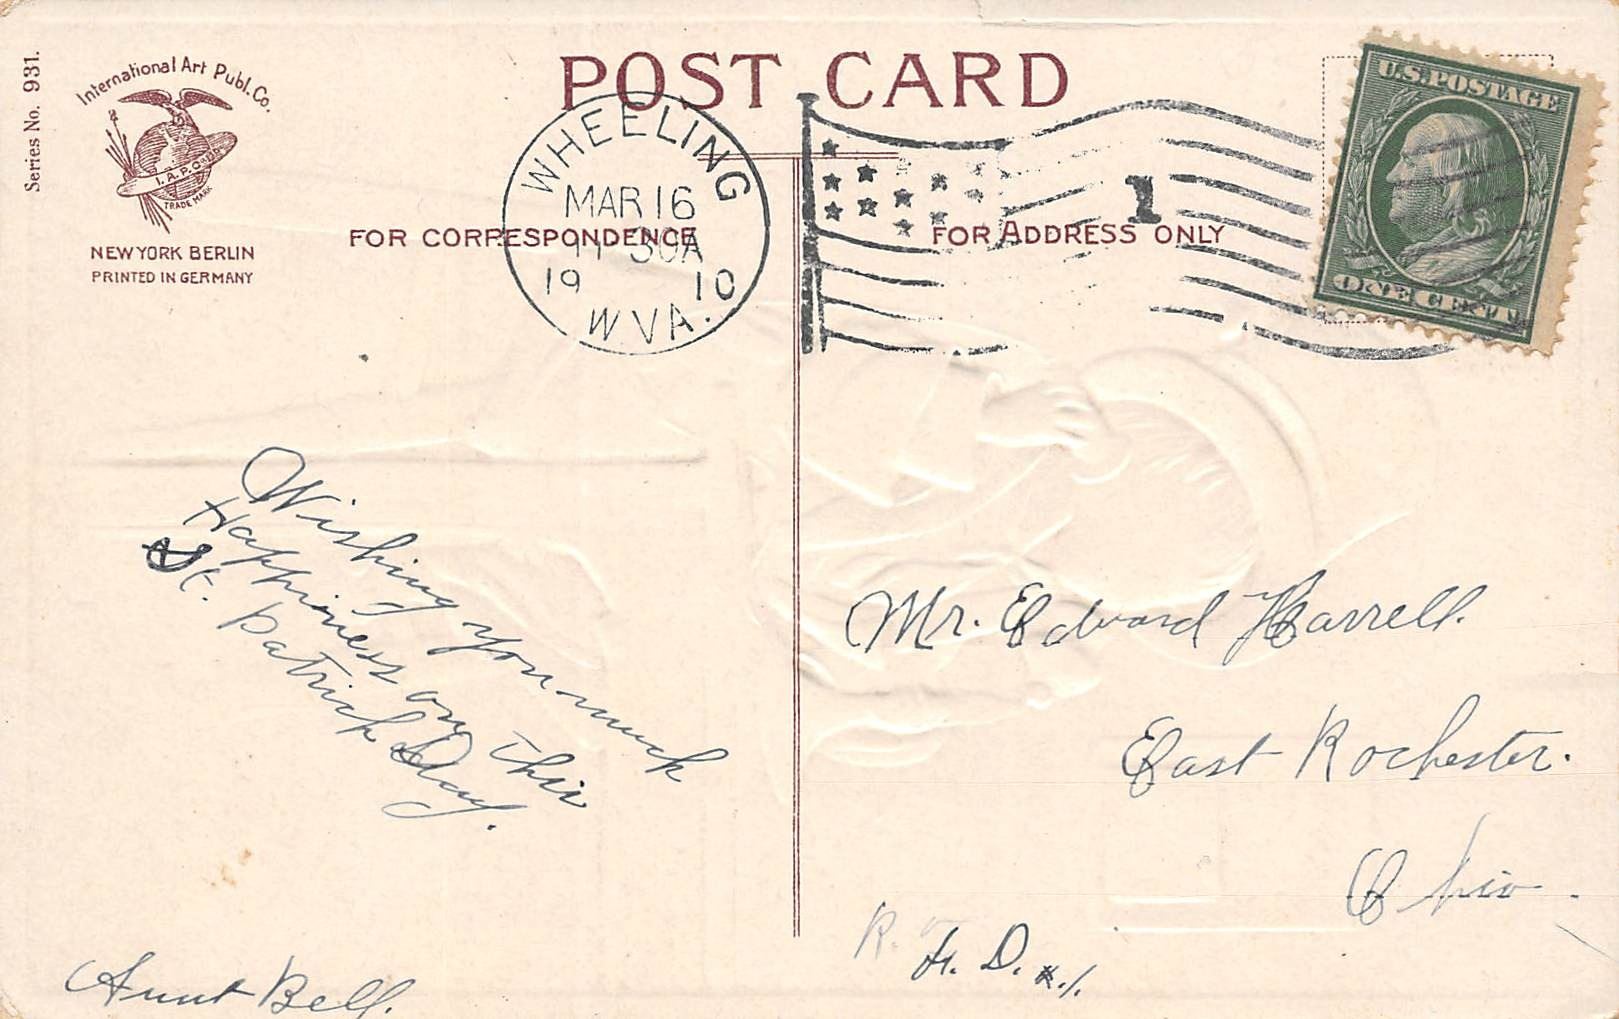 Series No. 931.
International Art Publ. Co.
I.A.P.Co.
TRADE MARK
NEW YORK BERLIN
PRINTED IN GERMANY
POST CARD
FOR CORRESPONDENCE
FOR ADDRESS ONLY
WHEELING
MAR 16
11 30A
19 10
W.VA.
1
U.S. POSTAGE
ONE CENT
Wishing you much
Happiness on this
St. Patrick Day.
Aunt Bell.
Mr. Edward Harrell.
East Rochester.
Ohio.
R. F. D. #.1.